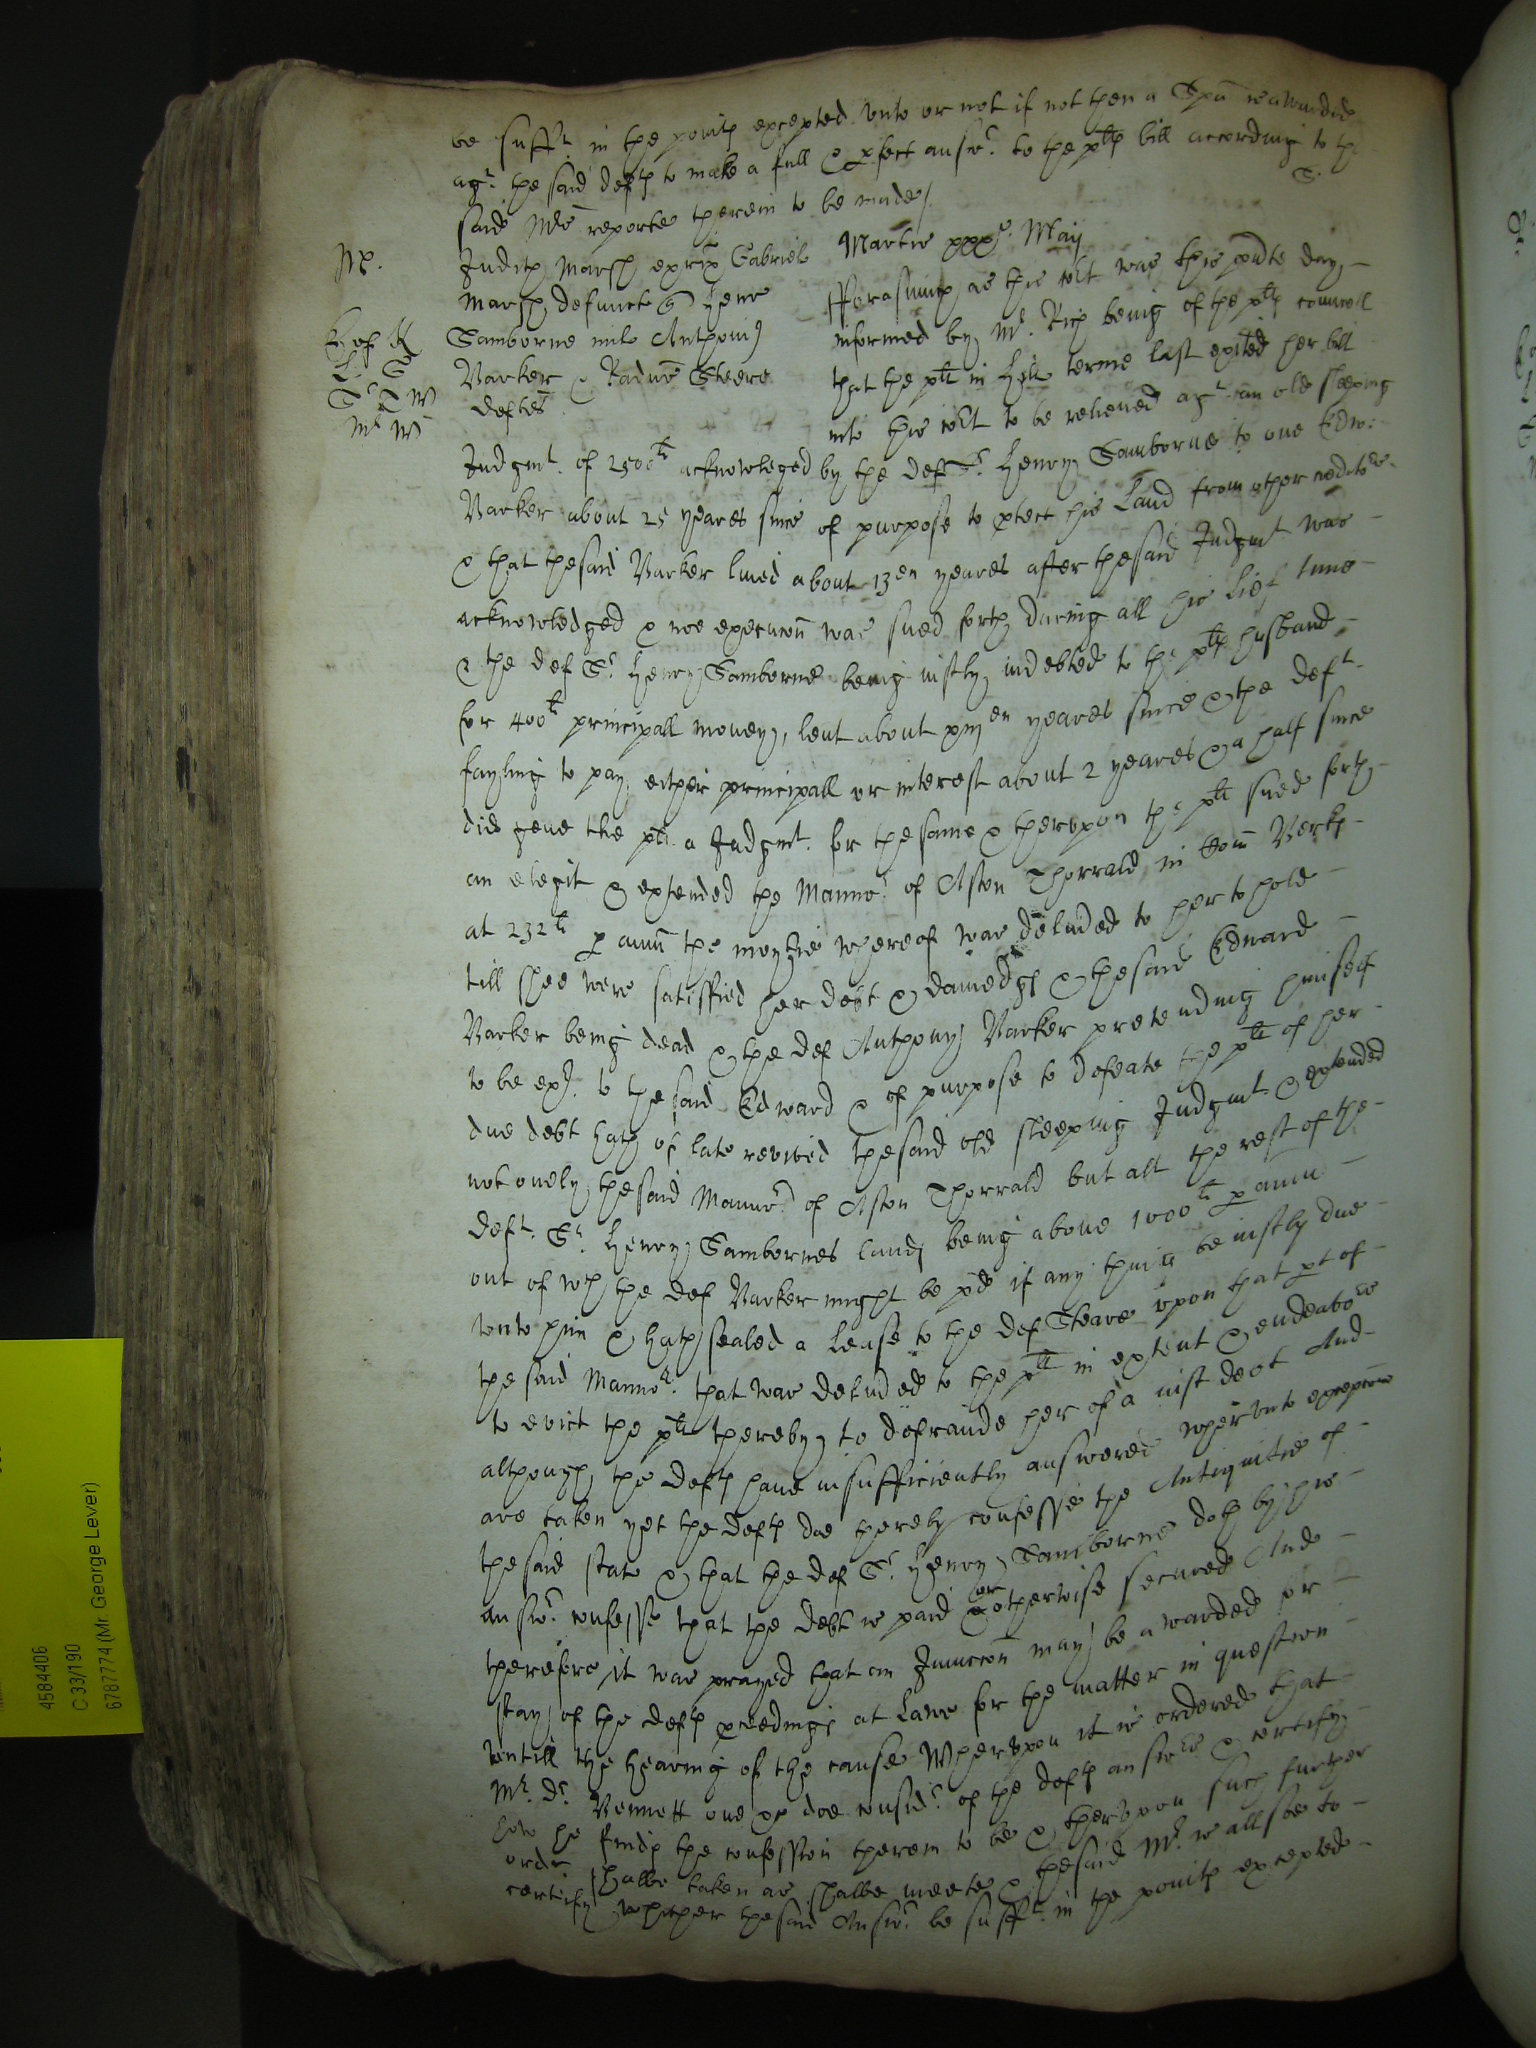 be suff.t in the point excepted vnto or not if not then a Spa is awarded
ag.t the said deft to make a full & pfect answ.r to the plts bill according to the
said M.rs reporte therein to be made /
S.
Martis xxx.o Maij
Judith Marsh exrix Gabriel
Marsh defuncte q Henr
Samborne milt Anthoniu
Barker & Radu Steere
deftes
fforasmuch as this Cot was this pnte day
informed by M.r Rich being of the plts councell
that the plt in Hill terme last exited her bill
into this Cot to be releived ag.t an old sleeping
Judgmt. of 2500li acknowleged by the def S.r Henry Samborne to one Edw:
Barker about 25 yeares since of purpose to ptect his Land from other creditors
& that the said Barker lived about 13en yeares after the said Judgmt was
acknowledged & noe execucon was sued forth during all his lief time
& the def S.r Henry Samborne being iustly indebted to the plts husband
for 400li principall money, lent about xiijen yeares since & the deft
fayling to pay either principall or interest about 2 yeares & a half since
did geue the plt a Judgmt. for the same & therupon the plt sued forth
an elegit & extended the Manno.r of Aston Thorrald in Com Berks
at 232li p annu the moytie whereof was deliuded to her to hold
till shee were satisfied her debt & damedgs & the said Edward
Barker being dead & the def Anthony Barker pretending himself
to be ex.r to the said Edward & of purpose to defeate the plt of her
due debt hath of late revived the said old sleeping Judgmt & extended
not onely the said Manno.r of Aston Thorrald but all the rest of the
deft. S.r Henry Sambornes lands being aboue 1000li p annu
out of wch the def Barker might be pd if any thing be iustly due
vnto him & hath sealed a lease to the def Steare vpon that pt of
the said Manno.r that was deliuded to the plt in extent & endeavo.rs
to evict the plt thereby to defraude her of a iust debt And
although the defts haue insufficiently answered wherunto excepcons
are taken yet the defts doe therely confesse the Antiquitie of
the said state & that the def S.r Henry Samborne doth by his
answ.r confesse that the debt is paid or otherwise secured And
therefore it was prayed that an Jniuccon may be awarded for
stay of the defts pceedings at Lawe for the matter in question
vntill the hearing of the cause Wherupon it is ordered that
M.r D.r Bennett one &c doe consid.r of the defts answers & certify
how he finds the confession therein to be & therupon such further
order shalbe taken as shalbe meete & the said M.r is allsoe to
certify whether the said Answ.r be suff.t in the points excepted
4584406
C 33/190
6787774 (Mr George Lever)